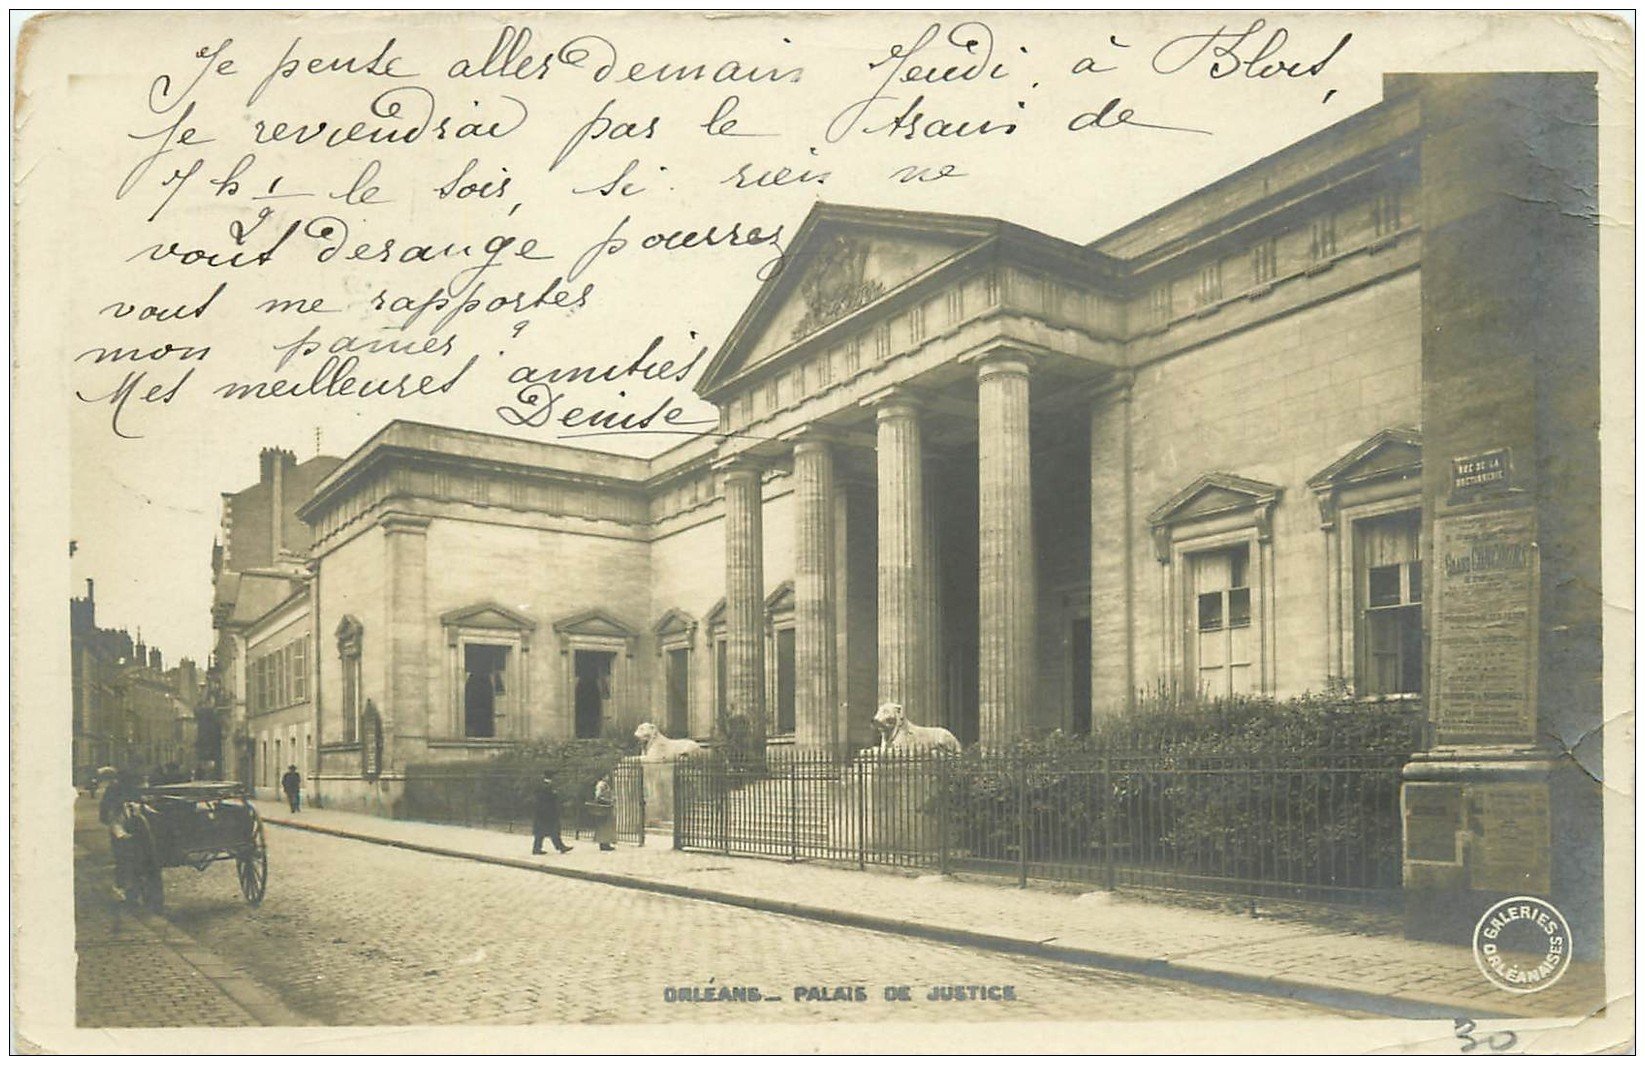 Je pense aller demain Jeudi, à Blois,
Je reviendrai par le train de
7 h 1/2 le soir, si rien ne
vous derange pourrez
vous me rapporter
mon panier ?
Mes meilleures amitiés
Denise
RUE DE LA
BRETONNERIE
GRAND CONCOURS
GALERIES
ORLÉANAISES
ORLÉANS_ PALAIS DE JUSTICE
30